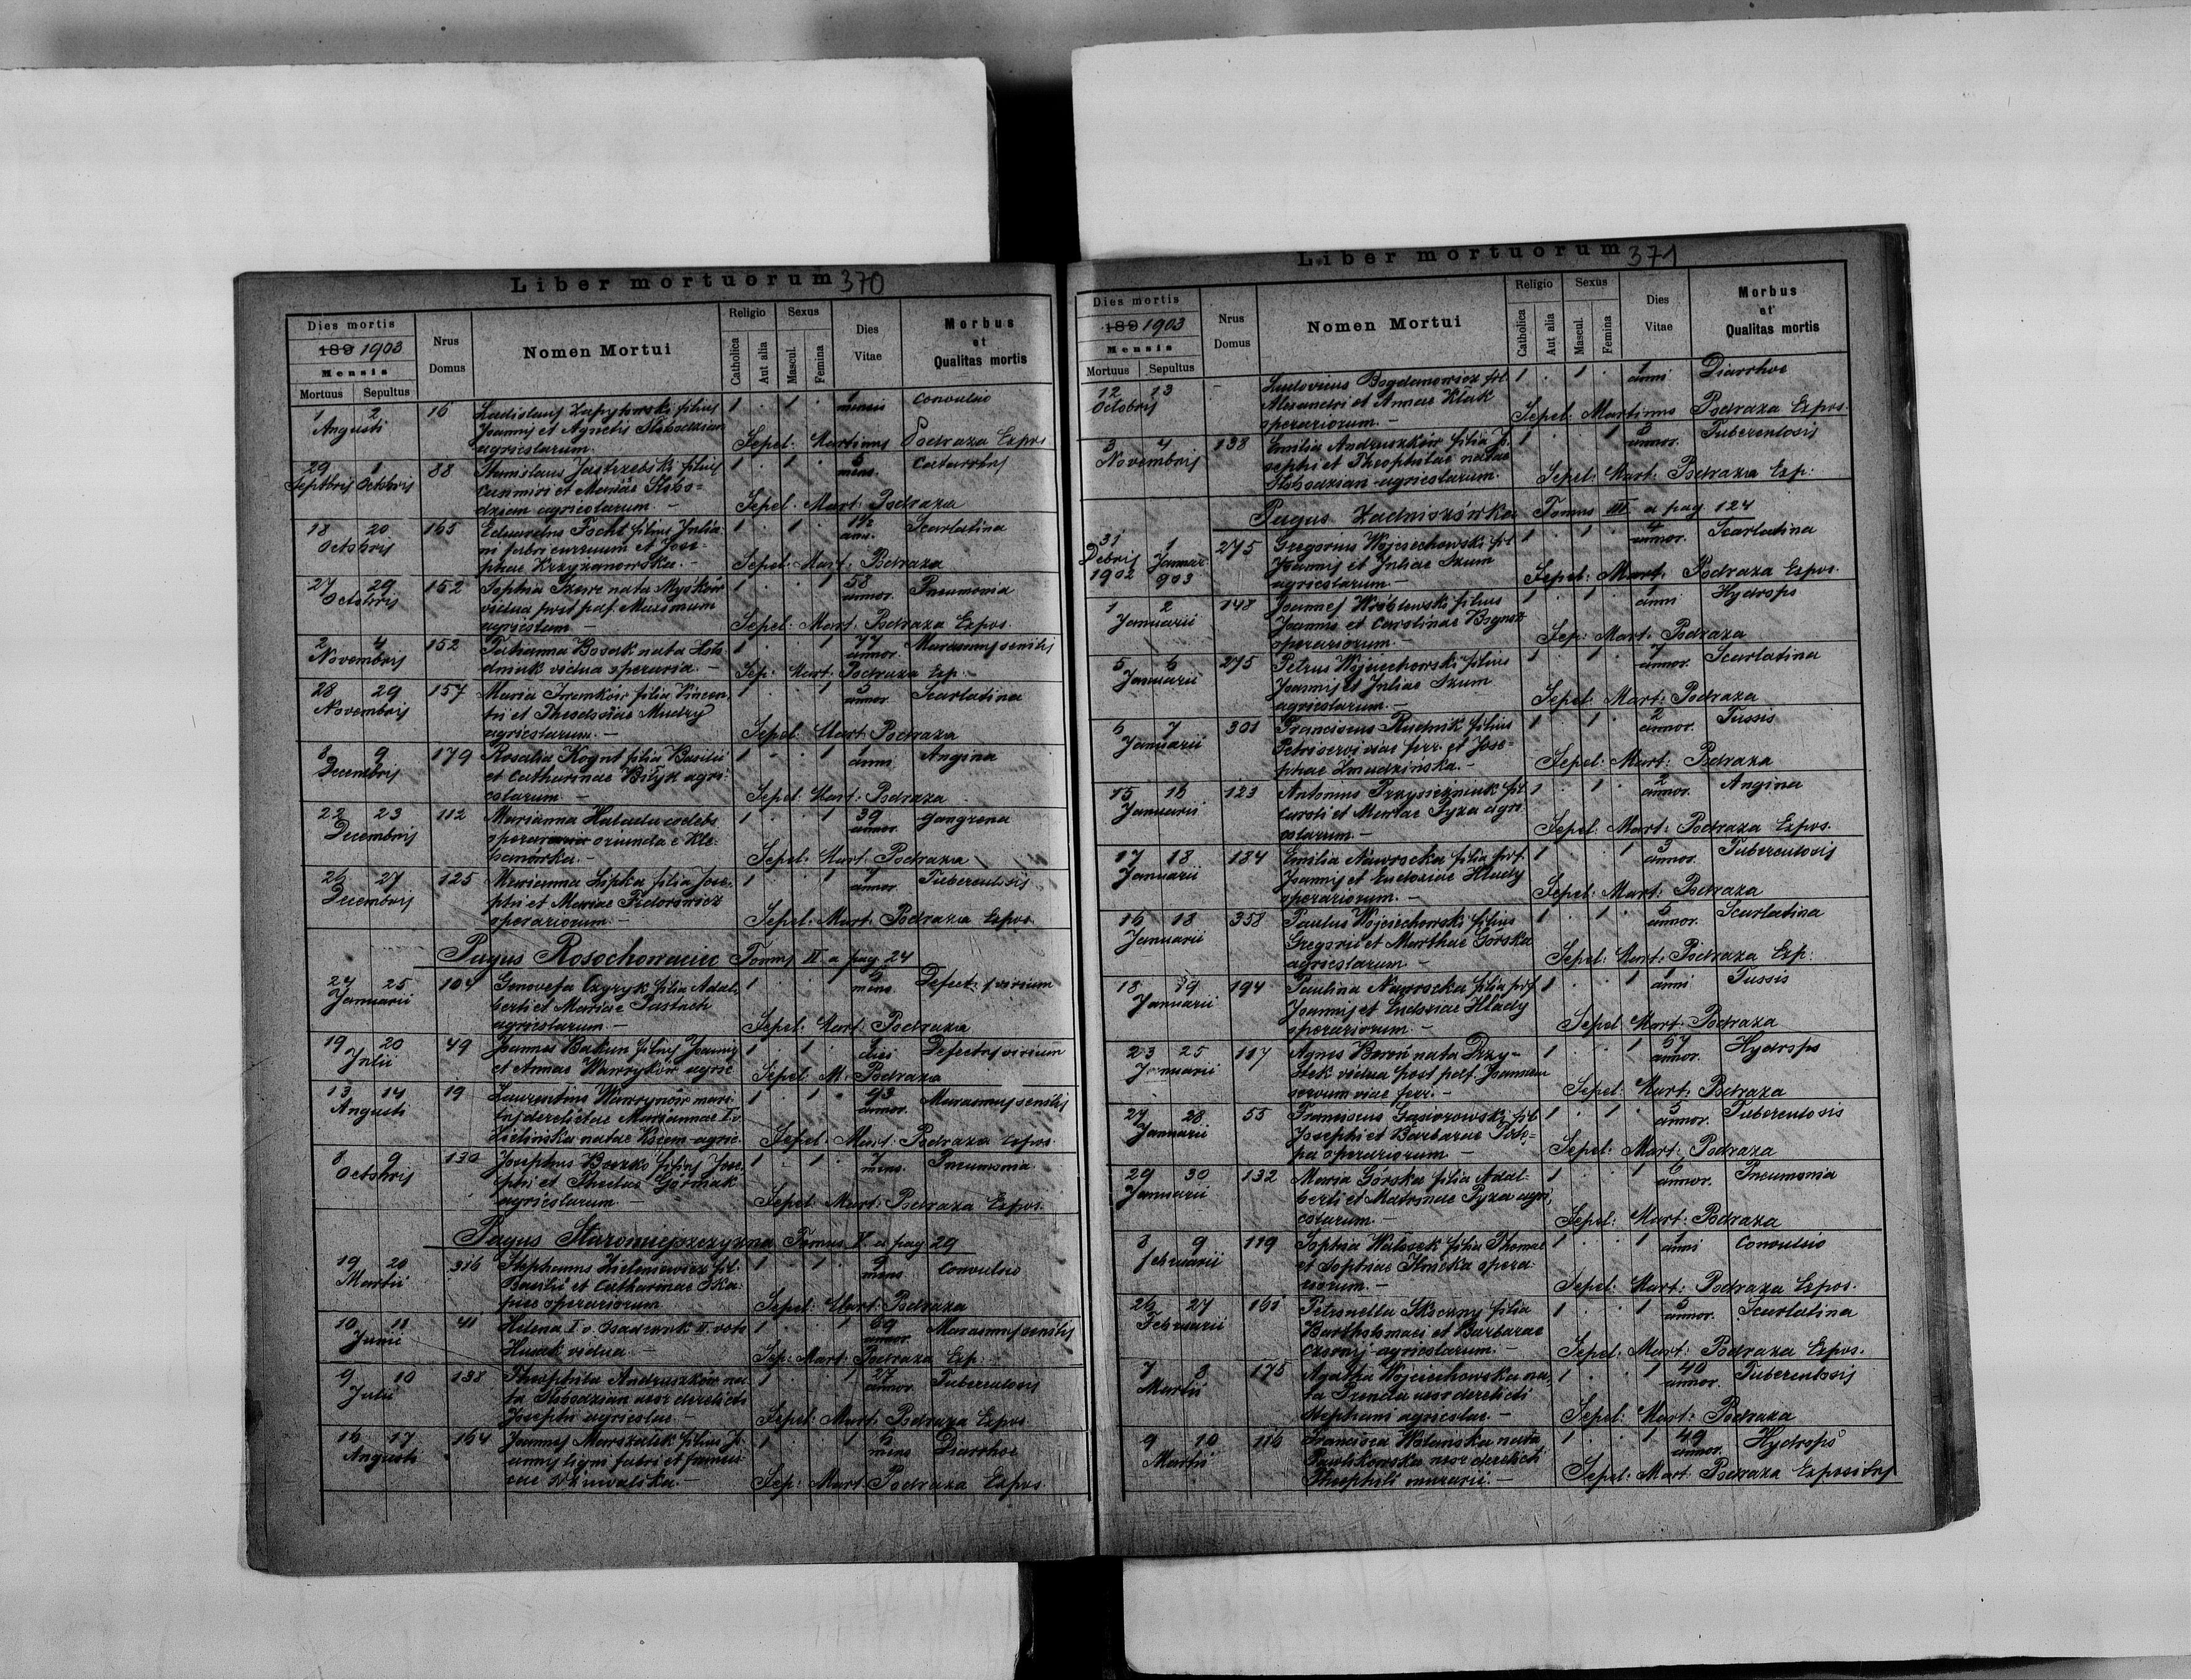 Liber mortuorum 370
Dies mortis
189 1903
Mensis
Mortuus Sepultus
Nrus Domus
Nomen Mortui
Religio
Catholica
Aut alia
Sexus
Mascul.
Femina
Dies Vitae
Morbus et Qualitas mortis
1 2 16 Ladislaus Zapytowski filius 1 . 1 . 1 Convulsio
Augusti Joannis et Agnetis Słobodzian mensis
agricolarum. Sepel. Martinus Podraza Expos
29 1 88 Stanislaus Jastrzębski filius 1 . 1 . 5 Catarrhus
Septbris Octobris Casimiri et Mariae Słobo= mens.
dzian agricolarum – Sepel. Mart. Podraza
18 20 165 Eduardus Focht filius Julia- 1 . 1 . 1½ Scarlatina
Octobris ni fabri curruum et Jose= ann.
phae Krzyżanowska. – Sepel. Mart. Podraza
27 29 152 Sophia Szewc nata Myśków 1 . . 1 58 Pneumonia
Octobris vidua post pdf. Maximum annor.
agricolam – Sepel. Mart. Podraza Expos.
2 4 152 Tatianna Bosak nata Hol- 1 . . 1 77 Marasmus senilis
Novembris vidua operaria. – annor.
Sep: Mart: Podraza Exp.
28 29 157 Maria Frankow filia Vincen- 1 . . 1 3 Scarlatina
Novembris tii et Theodosiae Mudry annor.
agricolarum. – Sepel. Mart: Podraza
8 9 179 Rosalia Kogut filia Basilii 1 . . 1 1 Angina
Decembris et Catharinae Biłyk agri- anni
colarum – Sepel: Mart: Podraza
22 23 112 Marianna caelebs 1 . . 1 39 Gangrena
Decembris oriunda e Kle- annor.
banówka. – Sepel: Mart: Podraza
26 27 125 Marianna Lipka filia Jose- 1 . . 1 7 Tuberculosis
Decembris phi et Mariae Fedorowicz annor.
operariorum. – Sepel: Mart. Podraza Expos
Pagus Rosochowaciec Tomus II a pag. 24
24 25 104 Genovefa Czyżyk filia Adal- 1 . . 1 5 Defect. virium
Januarii berti et Mariae Pastuch mens.
agricolarum. – Sepel: Mart: Podraza
19 20 49 Joannes Bakun filius Joannis 1 . 1 . 1 Defectus virium
Julii et Annae Wawryków agric. diei
Sepel: M. Podraza
13 14 19 Laurentius Wawrynów mari- 1 . 1 . 93 Marasmus senilis
Augusti tus derelictae Mariannae I. v. annor.
Zielińska natae agric. Sepel. Mart: Podraza Expos
8 9 130 Josephus Boczko filius Jose- 1 . 1 . 7 Pneumonia
Octobris phi et Theclae Górniak mens.
agricolarum – Sepel. Mart. Podraza Expos.
Pagus Staromiejszczyzna Tomus V a pag 29
19 20 316 Stephanus Zieleniewicz fil. 1 . 1 . 9 Convulsio
Martii Basilii et Catharinae Ska- mens
operariorum Sepel: Mart: Podraza
10 11 41 Helena I v. II. voto 1 . . 1 69 Marasmus senilis
Junii Husak vidua. – annor.
Sep: Mart: Podraza Exp:
9 10 138 Theophila Andruszków na- 1 . . 1 27 Tuberculosis
Julii ta Słobodzian uxor derelicti annor
Josephi agricolae. – Sepel: Mart. Podraza Expos.
16 17 164 Joannes Marszałek filius Jo- 1 . . 1 5 Diarrhoe
Augusti annis ligni fabri et Francis- mens
cae – Sep: Mart: Podraza Expos.
Liber mortuorum 371
Dies mortis
189 1903
Mensis
Mortuus Sepultus
Nrus Domus
Nomen Mortui
Religio
Catholica
Aut alia
Sexus
Mascul.
Femina
Dies Vitae
Morbus et Qualitas mortis
12 13 – Ludovicus Bogdanowicz fil 1 . 1 . 1 Diarrhoe
Octobris Alexandri et Annae Kłak anni
operariorum. – Sepel: Martinus Podraza Expos.
3 4 138 Emilia Andruszków filia Jo- 1 . . 1 3 Tuberculosis
Novembris sephi et Theophilae natae annor.
Słobodzian agricolarum. Sepel: Mart: Podraza Exp:
Pagus Zadniszówka Tomus III a pag 124
31 1 275 Gregorius Wojciechowski fil 1 . 1 . 4 Scarlatina
Debris Januar Joannis et Juliae Szum annor.
1902 903 agricolarum. – Sepel: Mart: Podraza Expos.
1 2 148 Joannes Wróblewski filius 1 . 1 . 1 Hydrops
Januarii Joannis et Carolinae anni
operariorum. – Sep: Mart: Podraza
5 6 275 Petrus Wojciechowski filius 1 . 1 . 7 Scarlatina
Januarii Joannis et Juliae Szum annor.
agricolarum. – Sepel: Mart: Podraza
6 7 301 Franciscus Rudnik filius 1 . 1 . 2 Tussis
Januarii Petri servi viae ferr. et Jose= annor.
phae Żmudzińska. – Sepel: Mart: Podraza
15 16 123 Antonius fil. 1 . 1 . 2 Angina
Januarii Caroli et Mariae Pyza agri- annor.
colarum. – Sepel: Mart: Podraza Expos.
17 18 184 Emilia Nawrocka filia pdf. 1 . . 1 3 Tuberculosis
Januarii Joannis et Eudoxiae Hłady annor.
operariorum. – Sepel: Mart: Podraza
16 18 358 Paulus Wojciechowski filius 1 . 1 . 5 Scarlatina
Januarii Gregorii et Marthae Górska annor.
agricolarum. – Sepel: Mart: Podraza Exp:
18 19 194 Paulina Nawrocka filia pdf. 1 . . 1 1 Tussis
Januarii Joannis et Eudoxiae Hłady anni
operariorum. – Sepel: Mart: Podraza
23 25 117 Agnes nata Przy- 1 . . 1 57 Hydrops
Januarii vidua post pdf. Joannem annor.
servum viae ferr. – Sepel: Mart: Podraza
27 28 55 Franciscus Gąsiorowski fil 1 . 1 . 3 Tuberculosis
Januarii Josephi et Barbarae annor.
operariorum – Sepel: Mart: Podraza
29 30 132 Maria Górska filia Adal- 1 . . 1 6 Pneumonia
Januarii berti et Matronae Pyza agri- annor.
colarum. – Sepel: Mart: Podraza
8 9 119 Sophia Walasek filia Thomae 1 . . 1 1 Convulsio
Februarii et Sophiae opera- anni
riorum. – Sepel: Mart: Podraza Expos.
26 27 161 Petronella Skoczny filia 1 . . 1 5 Scarlatina
Februarii Bartholomaei et Barbarae annor.
Czornij agricolarum. – Sepel: Mart: Podraza Expos.
7 8 175 Agatha Wojciechowska na- 1 . . 1 40 Tuberculosis
Martii ta Prenda uxor derelicti annor.
Stephani agricolae. – Sepel: Mart: Podraza
9 10 116 Francisca Wolanska nata 1 . . 1 49 Hydrops
Martii Pawlikowska uxor derelicti annor.
Theophili murarii. – Sepel: Mart: Podraza Expositus